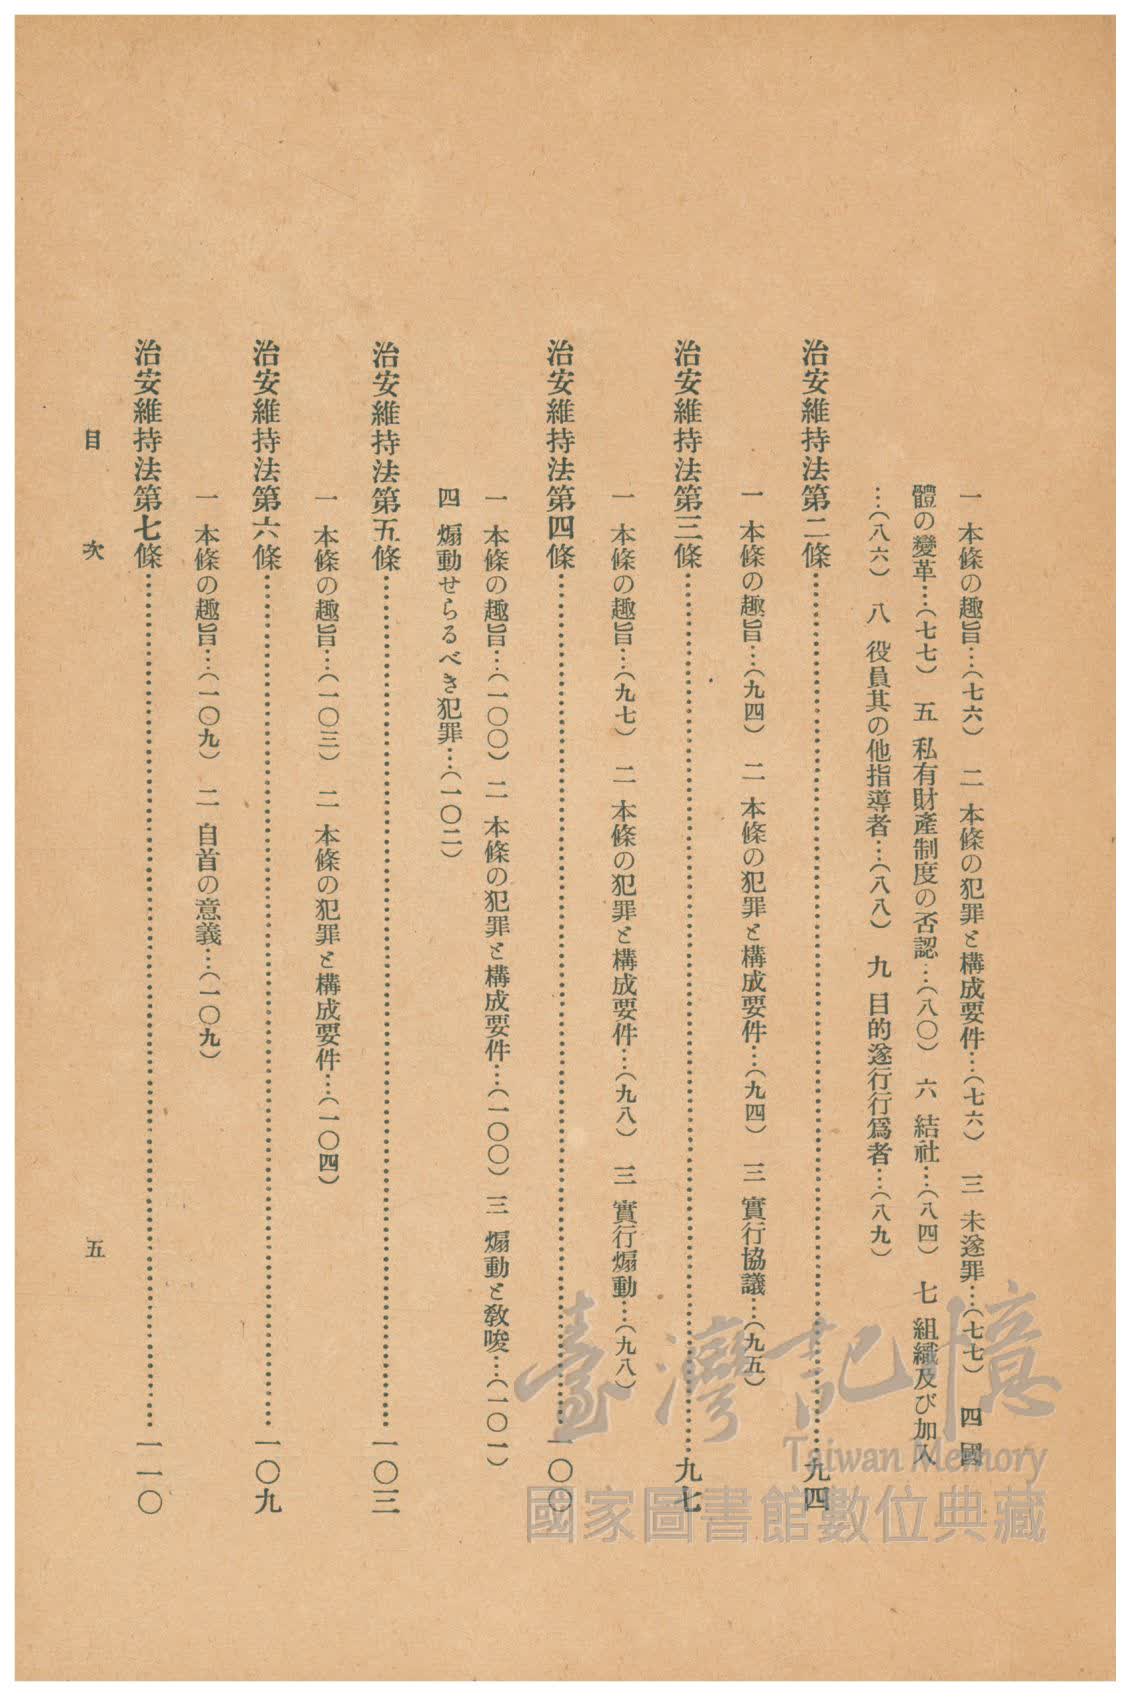 一 本條の趣旨…(七六) 二 本條の犯罪と構成要件…(七六) 三 未遂罪…(七七) 四 國
體の變革…(七七) 五 私有財產制度の否認…(八〇) 六 結社…(八四) 七 組織及び加入
…(八六) 八 役員其の他指導者…(八八) 九 目的遂行行爲者…(八九)
治安維持法第二條……九四
一 本條の趣旨…(九四) 二 本條の犯罪と構成要件…(九四) 三 實行協議…(九五)
治安維持法第三條……九七
一 本條の趣旨…(九七) 二 本條の犯罪と構成要件…(九八) 三 實行煽動…(九八)
治安維持法第四條……一〇〇
一 本條の趣旨…(一〇〇) 二 本條の犯罪と構成要件…(一〇〇) 三 煽動と敎唆…(一〇一)
四 煽動せらるべき犯罪…(一〇二)
治安維持法第五條……一〇三
一 本條の趣旨…(一〇三) 二 本條の犯罪と構成要件…(一〇四)
治安維持法第六條……一〇九
一 本條の趣旨…(一〇九) 二 自首の意義…(一〇九)
治安維持法第七條……一一〇
目 次
五
臺灣記憶
Taiwan Memory
國家圖書館數位典藏